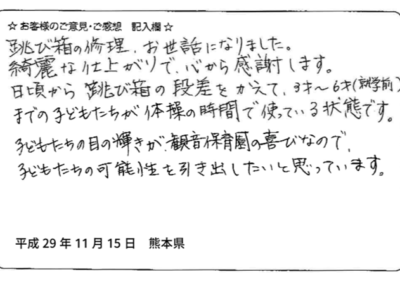 ☆お客様のご意見・ご感想 記入欄☆
跳び箱の修理、お世話になりました。
綺麗な仕上がりで、心から感謝します。
日頃から跳び箱の段差をかえて、3才〜6才(就学前)
までの子どもたちが体操の時間で使っている状態です。
子どもたちの目の輝きが、観音保育園の喜びなので、
子どもたちの可能性を引き出したいと思っています。
平成29年11月15日 熊本県